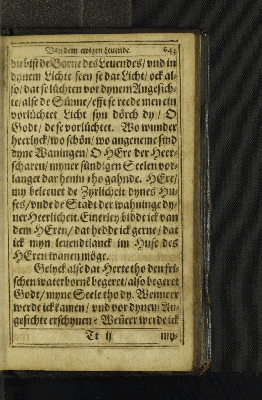 Van dem ewigen Leuende. 643
du bist de Borne des Leuendes/ vnd in
dynem Lichte seen se dat Licht/ ock al-
so/ dat se lüchten vor dynem Angesich-
te/ alse de Sünne/ effte se rede men ein
vorlüchtet Licht syn dörch dy/ O
Godt/ de se vorlüchtet. Wo wunder
heerlyck/ wo schön/ wo angeneme sind
dyne Waningen/ O HEre der Heer-
scharen/ myner sündigen Seelen vor-
langet dar henin tho gahnde. HEre/
my beleeuet de Zyrlicheit dynes Hu-
ses/ vnde de Stadt der wahninge dy-
ner Heerlicheit. Einerley bidde ick van
dem HEren/ dat hedde ick gerne/ dat
ick myn leuendtlanck im Huse des
HEren wanen möge.
Gelyck alse dat Herte tho den fri-
schen waterborne begeret/ also begeret
Godt/ myne Seele tho dy. Wenneer
werde ick kamen/ vnd vor dynem An-
gesichte erschynen? Weñeer werde ick
Tt ij my-